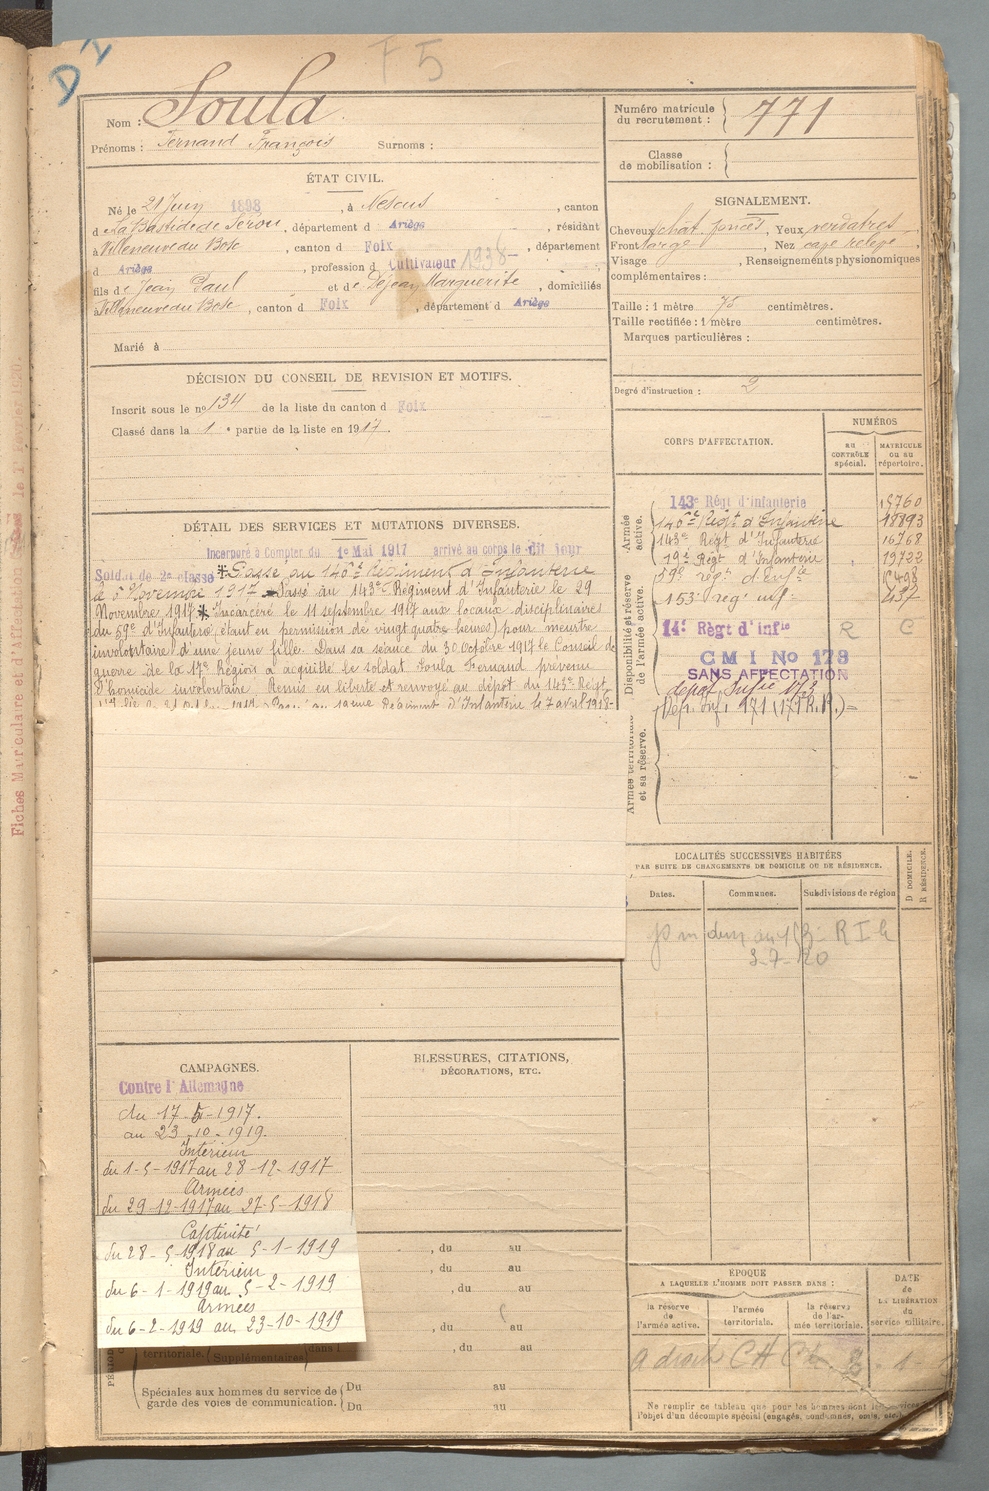 D'1
F 5
Nom : Soula
Prénoms : Fernand François Surnoms :
Numéro matricule du recrutement : 771
Classe de mobilisation :
ÉTAT CIVIL.
Né le 21 Juin 1898, à Nescus, canton
d e La Bastide de Serou, département d Ariège, résidant
à Villeneuve du Bosc, canton d Foix, département
d Ariège, profession d Cultivateur 1938
fils de Jean Paul et de Déjean Marguerite, domiciliés
à Villeneuve du Bosc, canton d Foix, département d Ariège
Marié à
SIGNALEMENT.
Cheveux chat. foncés, Yeux verdatres
Front large, Nez cave relevé
Visage , Renseignements physionomiques
complémentaires :
Taille : 1 mètre 75 centimètres.
Taille rectifiée : 1 mètre centimètres.
Marques particulières :
Degré d'instruction : 2
DÉCISION DU CONSEIL DE REVISION ET MOTIFS.
Inscrit sous le n° 134 de la liste du canton d Foix
Classé dans la 1e partie de la liste en 1917.
CORPS D'AFFECTATION.
NUMÉROS
au CONTRÔLE spécial.
MATRICULE ou au répertoire.
Armée active.
143e Régt d'Infanterie 15760
140e Régt d'Infanterie 18893
143e Régt d'Infanterie 16768
19e Régt d'Infanterie 19722
59e régt d'Infie
153e rég inf 437
Disponibilité et réserve de l'armée active.
14e Règt d'infie R C
C M I No 179
SANS AFFECTATION
dépot Infie 173
Dép. Inf. 171 (171 R.R.)
Armée territoriale et sa réserve.
DÉTAIL DES SERVICES ET MUTATIONS DIVERSES.
Incorporé à Compter du 1e Mai 1917 arrivé au corps le dit jour
Soldat de 2e classe * Passé au 140e Régiment d'Infanterie
le 6 Novembre 1917 Passé au 143e Régiment d'Infanterie le 29
Novembre 1917 * Incarcéré le 11 septembre 1917 aux locaux disciplinaires
du 59e d'Infanterie étant en permission de vingt quatre heures) pour meurtre
involontaire d'une jeune fille. Dans sa séance du 30 Octobre 1917 le Conseil de
guerre de la 17e Région a acquitté le soldat Soula Fernand prévenu
d'homicide involontaire. Remis en liberté et renvoyé au dépôt du 143e Régt
d'Infanterie le 7 avril 1918-
LOCALITÉS SUCCESSIVES HABITÉES
PAR SUITE DE CHANGEMENTS DE DOMICILE OU DE RÉSIDENCE.
Dates. Communes. Subdivisions de région
D DOMICILE. R RÉSIDENCE.
3-7-20
CAMPAGNES.
Contre l'Allemagne
du 17-5-1917.
au 23-10-1919.
Intérieur
du 1-5-1917 au 28-12-1917
Armées
du 29-12-1917 au 27-5-1918
Captivité
du 28-5-1918 au 5-1-1919
Intérieur
du 6-1-1919 au 5-2-1919
Armées
du 6-2-1919 au 23-10-1919
BLESSURES, CITATIONS,
DÉCORATIONS, ETC.
, du au
, du au
, du au
, du au
territoriale. (Supplémentaires) dans l , du au
Spéciales aux hommes du service de garde des voies de communication.
Du au
Du au
ÉPOQUE
A LAQUELLE L'HOMME DOIT PASSER DANS :
la réserve de l'armée active.
l'armée territoriale.
la réserve de l'armée territoriale.
DATE de LA LIBÉRATION du service militaire.
a droit C A C
Ne remplir ce tableau que pour les hommes dont les services
l'objet d'un décompte spécial (engagés, condamnés, omis, etc.)
Fiches Matriculaire et d'Affectation